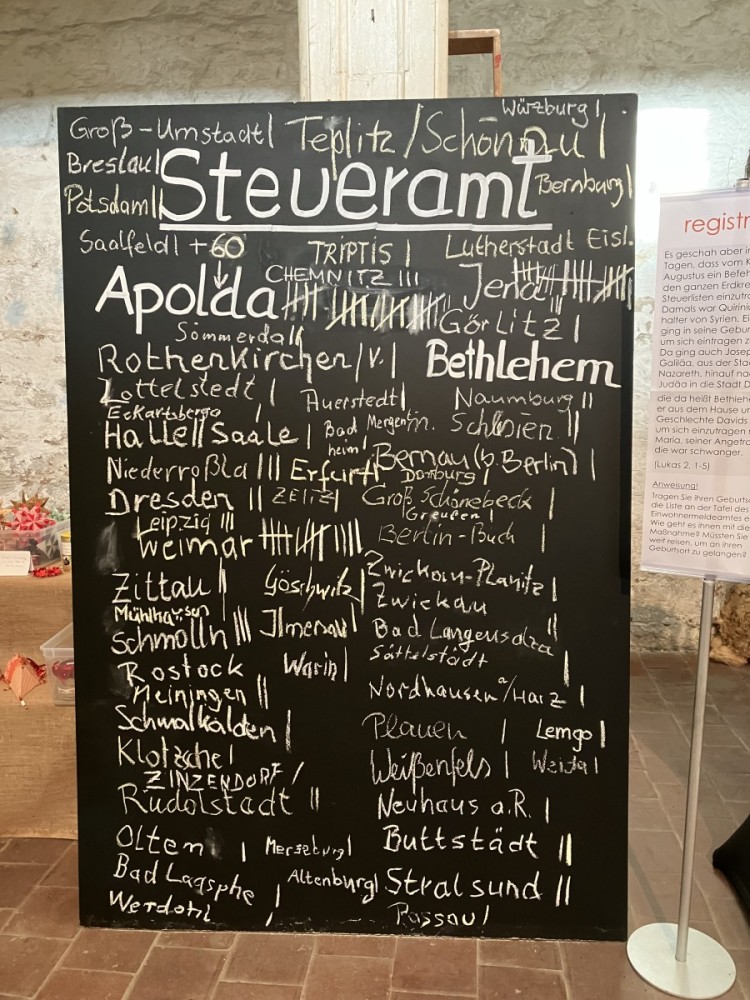 Würzburg |
Groß-Umstadt | Teplitz/Schönau |
Breslau |
Steueramt
Potsdam || Bernburg |
Saalfeld | + 60 TRIPTIS | Lutherstadt Eisl.
CHEMNITZ ||| Jena
Apolda Görlitz |
Sömmerda ||
Rothenkirchen/V. | Bethlehem
Zottelstedt | Auerstedt | Naumburg ||
Eckartsberga |
Halle/Saale | Bad Mergent- Schlesien ||
heim |
Niederroßla ||| Erfurt Bernau (b. Berlin) |
Dornburg |
Dresden || ZEITZ | Groß Schönebeck |
Leipzig ||| Greußen |
Weimar Berlin-Buch |
Zittau | Göschwitz | Zwickau-Planitz |
Mühlhausen Zwickau
Schmölln ||| Ilmenau | Bad Langensalza ||
Sättelstädt |
Rostock Warin |
Meiningen || Nordhausen a/Harz |
Schmalkalden | Plauen | Lemgo |
Klotzsche | Weißenfels | Weida |
ZINZENDORF /
Rudolstadt || Neuhaus a.R. |
Olten | Merseburg | Buttstädt ||
Bad Laasphe Altenburg | Stralsund ||
Werdohl | Passau |
registr
Es geschah aber in
Tagen, dass vom K
Augustus ein Befeh
den ganzen Erdkre
Steuerlisten einzutr
Damals war Quirini
halter von Syrien. Ei
ging in seine Gebur
um sich eintragen z
Da ging auch Jose
Galiläa, aus der Sta
Nazareth, hinauf na
Judäa in die Stadt D
die da heißt Bethlehe
er aus dem Hause u
Geschlechte Davids
um sich einzutragen m
Maria, seiner Angetra
die war schwanger.
(Lukas 2, 1-5)
Anweisung!
Tragen Sie ihren Geburtso
die Liste an der Tafel des
Einwohnermeldeamtes e
Wie geht es ihnen mit die
Maßnahme? Müssten Sie
weit reisen, um an ihren
Geburtsort zu gelangen?